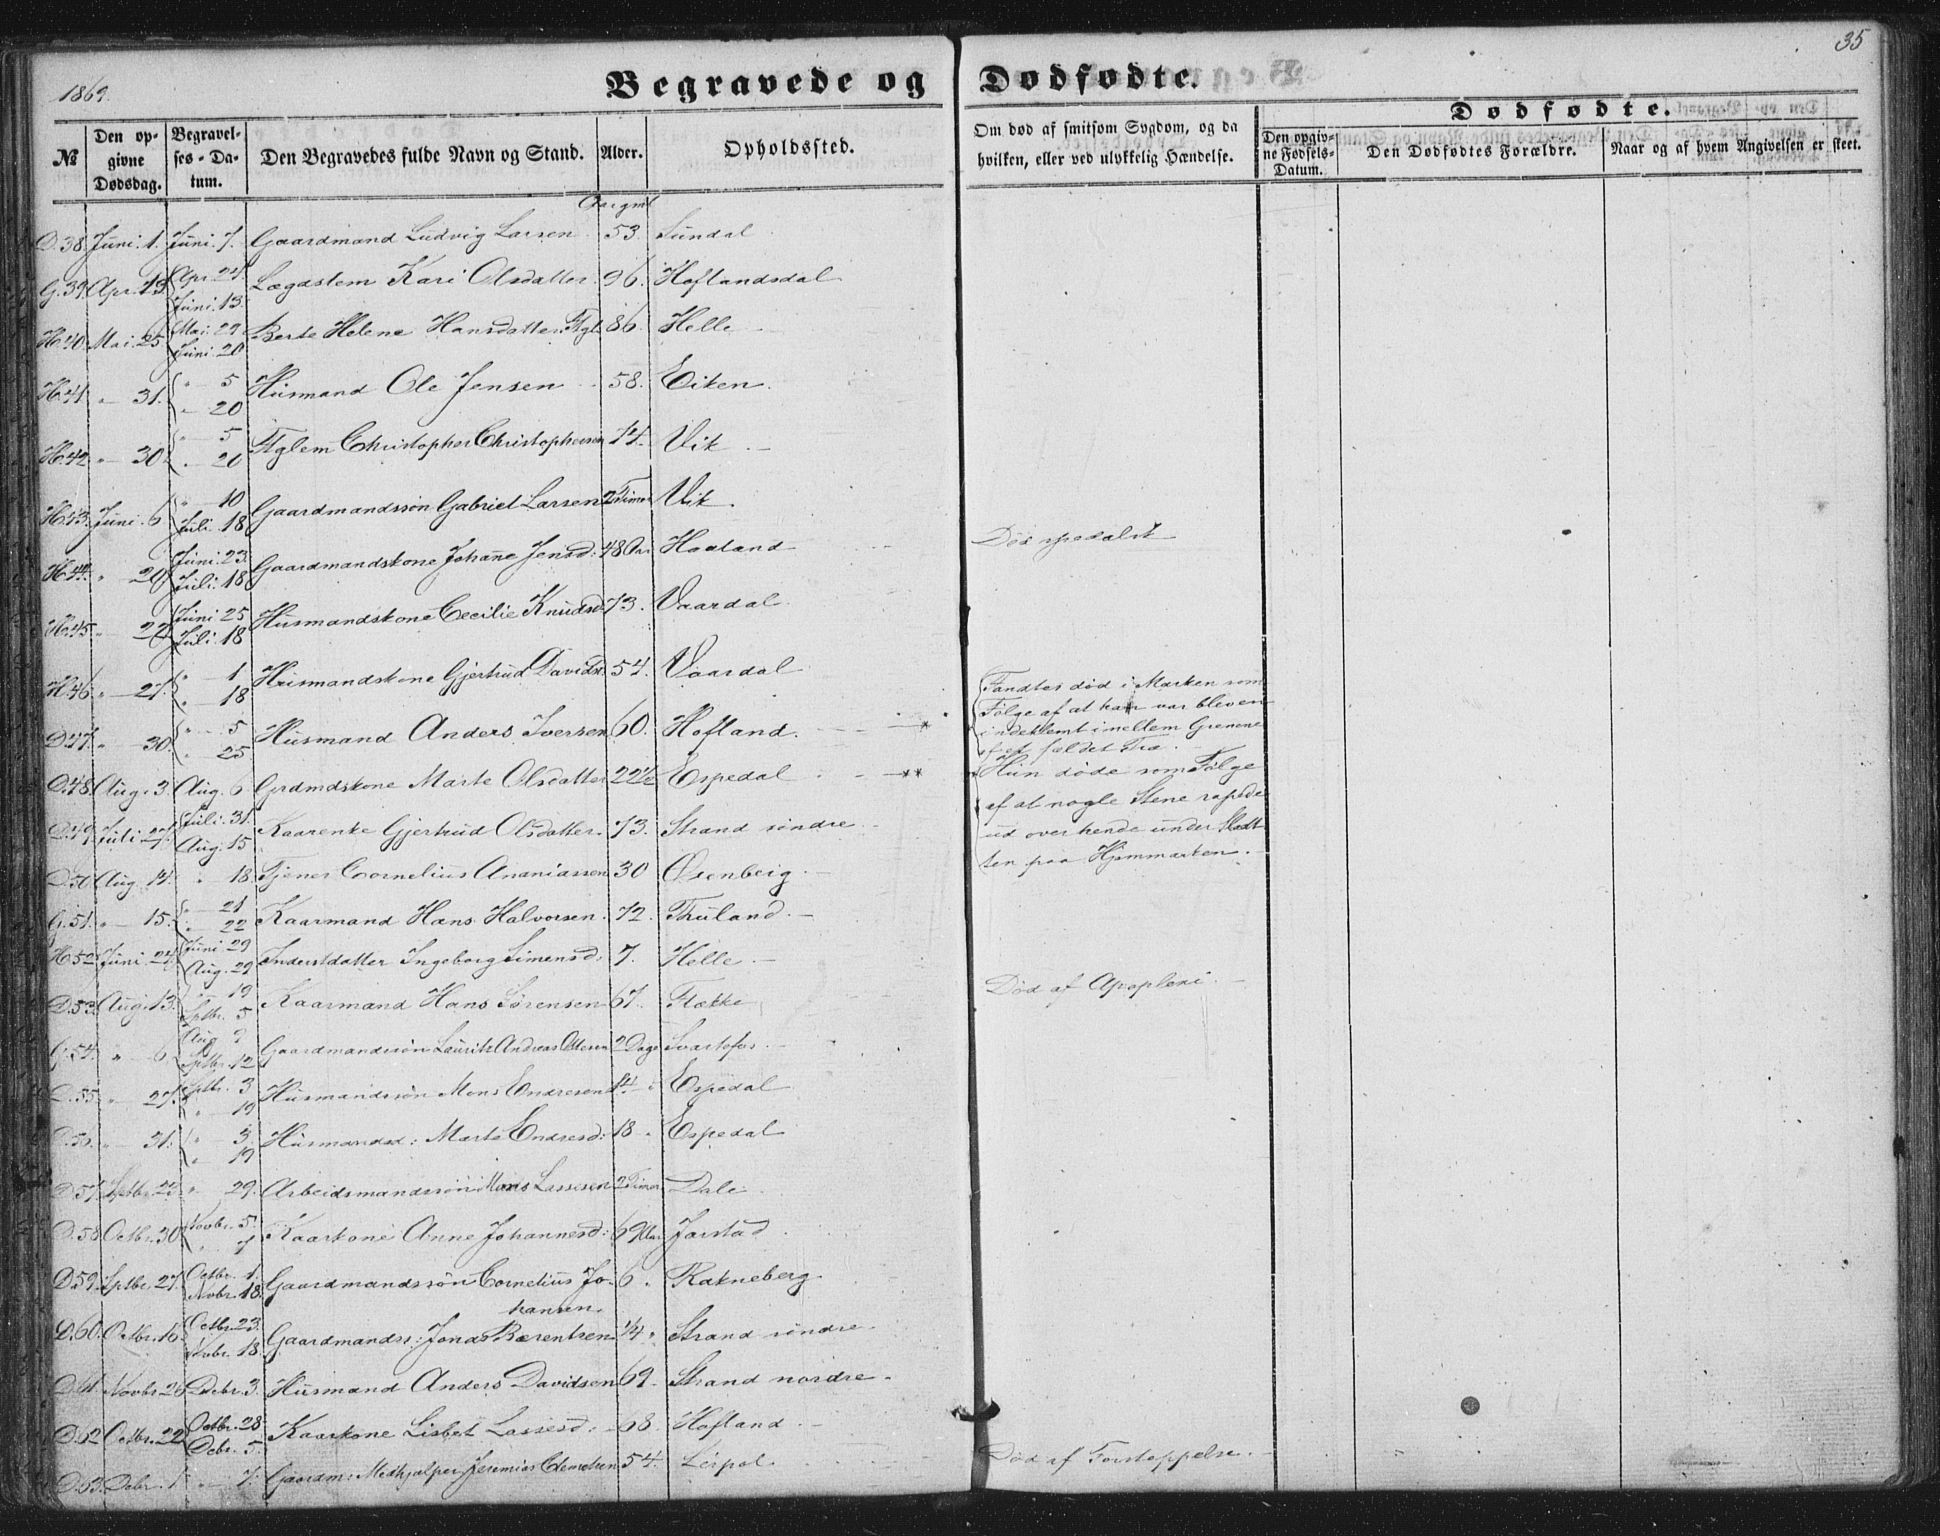 35
1869.
Begravede og Dødfødte.
Dødfødte.
№
Den opgivne Dødsdag.
Begravelses-Datum.
Den Begravedes fulde Navn og Stand.
Alder.
Opholdssted.
Om død af smitsom Sygdom, og da hvilken, eller ved ulykkelig Hændelse.
Den opgivne Fødsels-Datum.
Den Dødfødtes Forældre.
Naar og af hvem Angivelsen er skeet.
Aar gml
D.38. Juni. 1. Juni. 7. Gaardmand Ludvig Larsen 53. Sundal
G.39. Apr. 13. Apr. 24. Juni. 13. Lægdslem Kari Olsdatter 96. Hoflandsdal
H.40. Mai. 25. Mai. 29 Juni. 20 Berte Helene Hansdatter Ftgl. 86. Helle
H.41. " — 31. " — 5 " — 20 Husmand Ole Jensen 58. Eiken
H.42. " — 30. " — 5 " — 20 Ftglem Christopher Christophersen 74. Vik
H.43. Juni. 6. " — 10 Juli. 18 Gaardmandssøn Gabriel Larsen 2 Timer Vik.
H.44. " 20 Juni. 23. Juli. 18 Gaardmandskone Johanne Jensd: 48 Aar Haaland
Død spedalsk
H.45. " 22 Juni 25 Juli. 18 Husmandskone Cecilie Knudsd 73. Vaardal
H.46. " — 27. " — 1 " — 18 Husmandskone Gjertrud Davidsd: 54. Vaardal
D.47. " — 30. " — 5 " — 25 Husmand Anders Iversen 60. Hofland. — *
Fandtes død i Marken som
Følge af at han var bleven
indeklemt imellem Grenene
af et fældet Træ.
D.48. Aug. 3. Aug. 6 Grdmdskone Marte Olsdatter 22½ Espedal — **
Hun døde som Følge
af at nogle Stene rapede
ud over hende under Slaat
ten paa Hjemmarken.
D.49. Juli. 27. Juli. 31. Aug. 15 Kaarenke Gjertrud Olsdatter. 73. Strand søndre
D.50. Aug. 14. " 18. Tjener Cornelius Ananiassen 30 Øsenberg
G.51. " — 15. " — 21 " 22 Kaarmand Hans Halvorsen. 72. Thuland.
H.52. Juni. 24. Juni 29 Aug. 29 Inderstdatter Ingeborg Simensd: 7. Helle.
D.53. Aug. 13. " 19 Sptbr. 5 Kaarmand Hans Sørensen 67. Flække
Død af Apoplexi.
G.54. " 6 Aug 9 Sptbr. 12 Gaardmandssøn Lauritz Andreas Ottesen 2 Dage Svartefos.
D.55. " 27. Sptbr. 3 " 19 Husmandssøn Mons Endresen 14 Espedal
D.56. " 31. " 3. " 19 Husmandsd: Marte Endresd: 18. Espedal
D.57. Sptbr. " 29. Arbeidsmandssøn Mons Lassesen 2 Timer Dale
D.58. Octbr. 30 Novbr. 5. " 7 Kaarkone Anne Johannesd: 69 Aar Jarstad
D.59. Sptbr. 27. Octbr. 1 Nvbr. 18. Gaardmandssøn Cornelius Jo-
hansen. 6. Rakneberg
D.60. Octbr. 16. Octbr. 23. Nvbr. 18. Gaardmandss: Jonas Bærentsen ¼ " Strand søndre
D.61. Novbr. 26 Debr. 3. Husmand Anders Davidsen 69. Strand nordre.
D.62 Octbr. 22 Octbr. 28. Debr. 5. Kaarkone Lisbet Lassesd: 68. Hofland.
D.63. Debr. 1 " 7. Gaardm: Medhjælper Jeremias Clemetsen 54. Leirpol
Død af Forstoppelse.